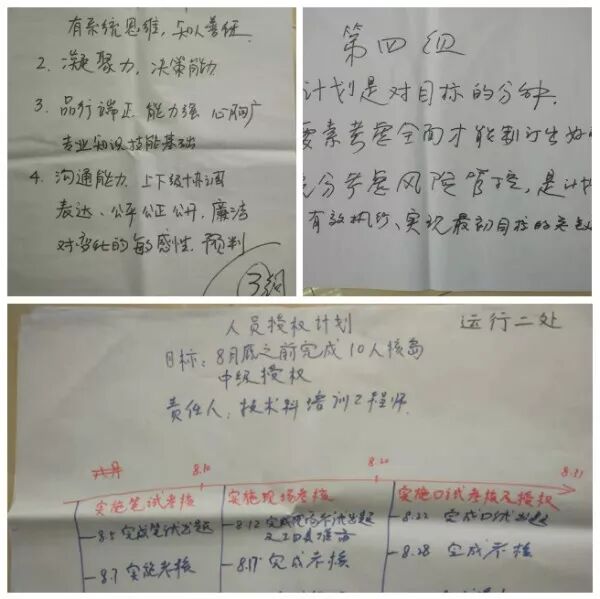 有系统思维,知人善任
2. 凝聚力,决策能力
3. 品行端正 能力强 心胸广
专业知识技能基础
4. 沟通能力 上下级协调
表达、公平公正公开,廉洁
对变化的敏感性.预判
③组
第四组
计划是对目标的分钟.
要素考虑全面才能制订出好的
充分考虑风险管控,是计划
有效执行、实现最初目标的
人员授权计划
运行二处
目标:8月底之前完成10人核岛
中级授权
责任人:技术科培训工程师
8.10
8.20
8.31
实施笔试考核
实施现场考核
实施口试考核及授权
8.5 完成笔试出题
8.12 完成现场考试出题
及工具准备
8.22 完成口试出题
8.7 实施考核
8.17 完成考核
8.28 完成考核